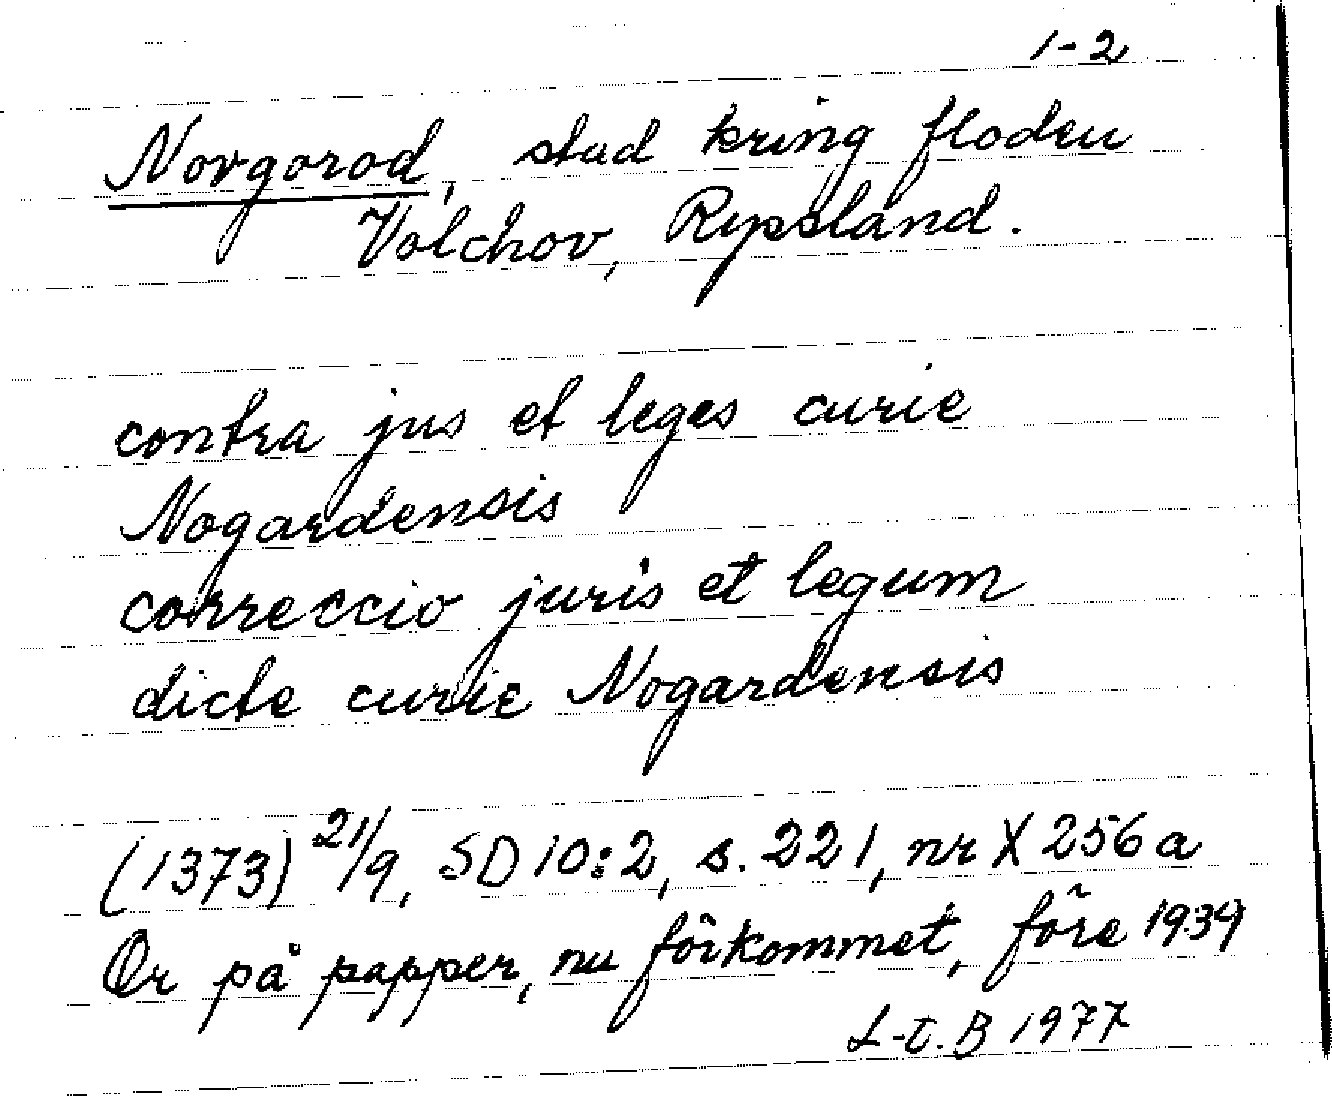 1-2
Novgorod, stad kring floden
Volchov, Ryssland.
contra jus et leges curie
Nogardensis
correccio juris et legum
dicte curie Nogardensis
(1373) 21/9, SD 10:2, s. 221, nr X 256 a
Or på papper, nu förkommet, före 1939
L-t. B 1977